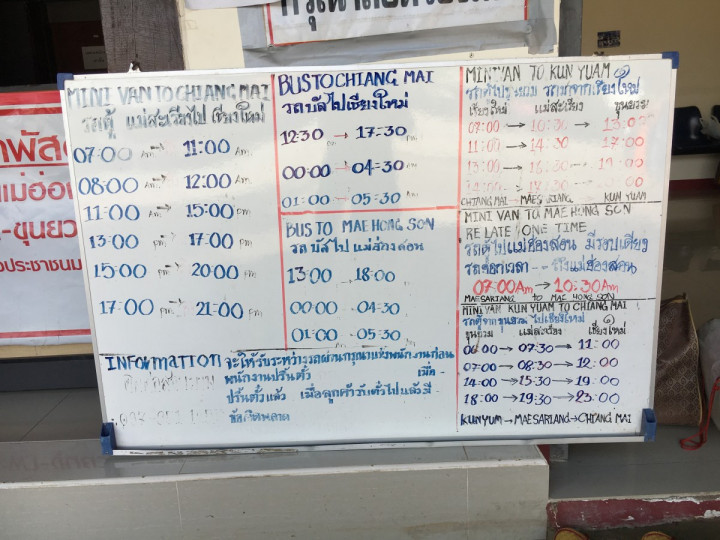 MINI VAN TO CHIANG MAI
รถตู้ แม่สะเรียงไป เชียงใหม่
07:00 Am → 11:00 Am
08:00 Am → 12:00 Am
11:00 Am → 15:00 pm
13:00 pm → 17:00 pm
15:00 pm → 20:00 pm
17:00 pm → 21:00 pm
BUS TO CHIANG MAI
รถบัสไปเชียงใหม่
12:30 pm → 17:30 pm
00:00 → 04:30
01:00 → 05:30
BUS TO MAE HONG SON
รถบัสไป แม่ฮ่องสอน
13:00 - 18:00
00:00 - 04:30
01:00 - 05:30
MINIVAN TO KUN YUAM
เชียงใหม่ แม่สะเรียง ขุนยวม
07:00 → 10:30 →
11:00 → 14:30 17:00
13:00 → 16:30 → 19:00
CHIANG MAI → MAESARIANG KUN YUAM
MINI VAN TO MAE HONG SON
RE LATE ONE TIME
รถตู้ไปแม่ฮ่องสอน มีรอบเดียว
07:00 Am → 10:30 Am
MAESARIANG to MAE HONG SON
MINI VAN KUN YUAM TO CHIANG MAI
รถตู้จากขุนยวม ไปเชียงใหม่
ขุนยวม แม่สะเรียง เชียงใหม่
06:00 → 07:30 → 11:00
07:00 → 08:30 → 12:00
14:00 → 15:30 → 19:00
18:00 → 19:30 → 23:00
KUNYUM → MAESARIANG → CHIANG MAI
INFORMATION
พนักงานปริ้นตั๋ว เมื่อ -
ปริ้นตั๋วแล้ว เมื่อลูกค้ารับตั๋วไปแล้วมี
ข้อผิดพลาด